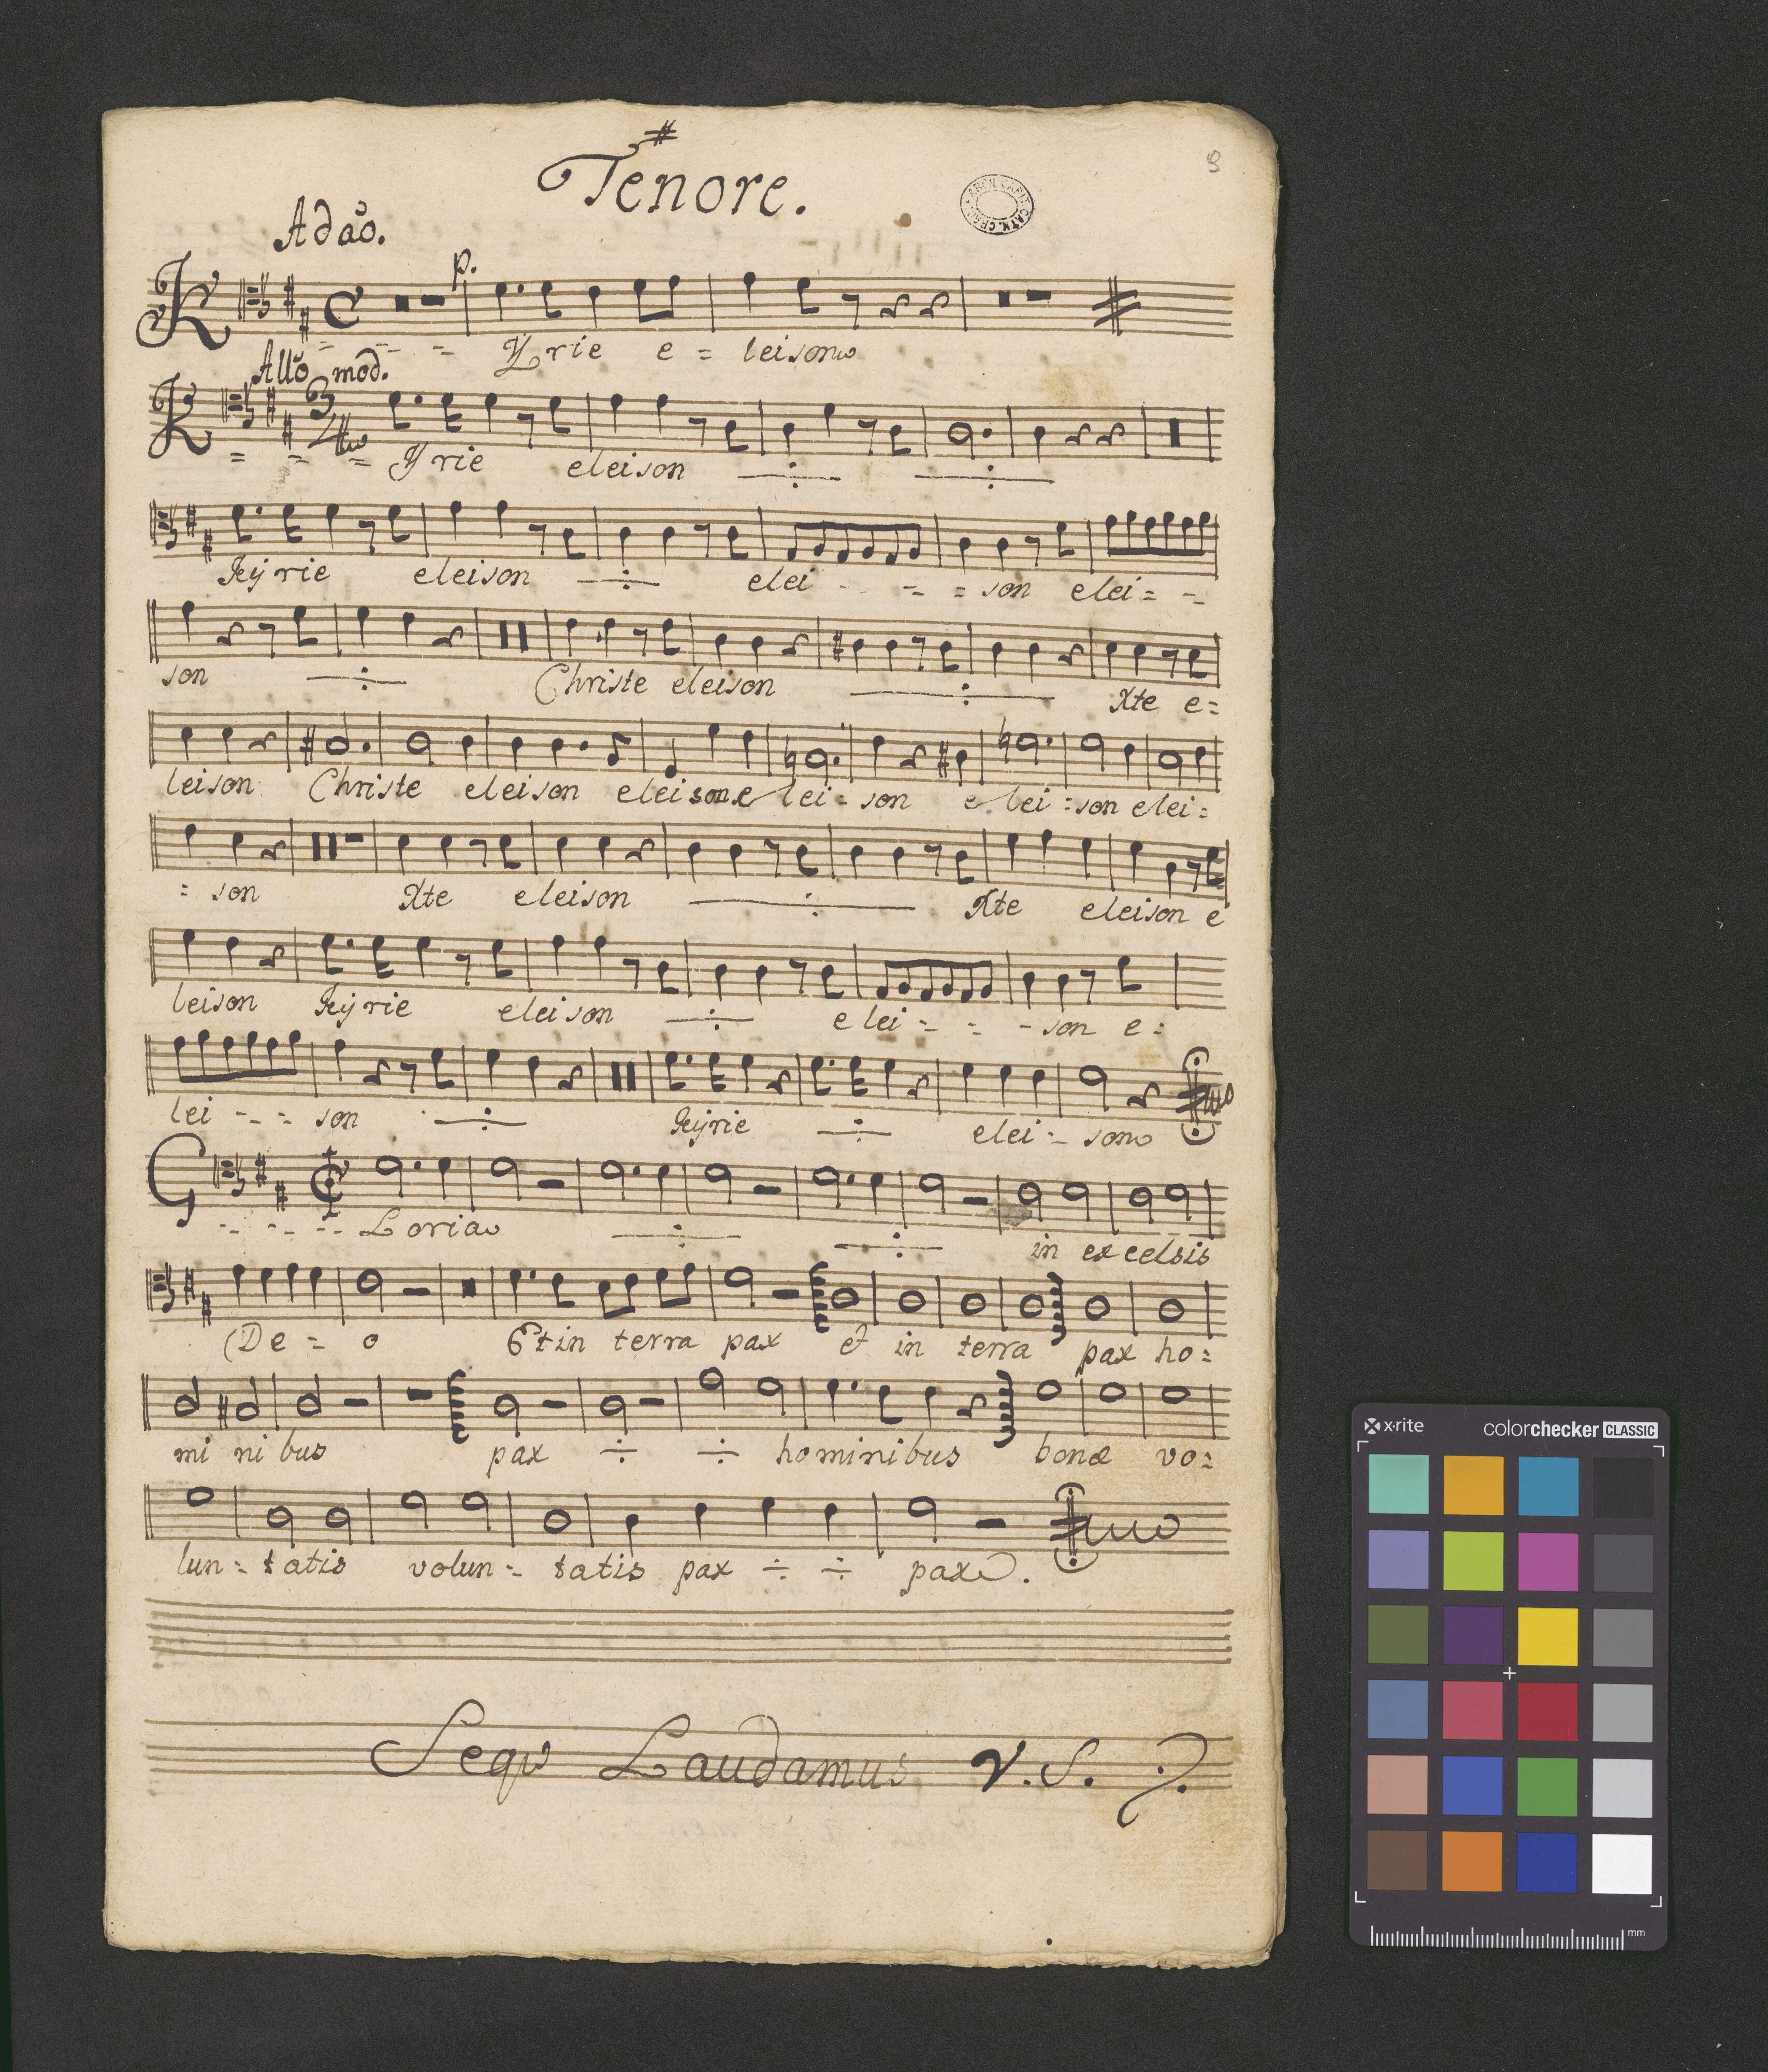 Tenore.
9
ARCH. CAPIT. CATH. CRAC.
Adaō.
p.
K = - - = Yrie e = leison
Allō mod.
3/4
K = - = Yrie eleison
Keÿrie eleison elei - - = son elei = -
son Christe eleison Xte e=
leison Christe eleison eleison e lei - son e lei = son elei =
= son Xte eleison Xte eleison e
leison Keÿrie eleison e lei - - - son e =
lei - - - son Keÿrie elei - son
G - - - - Loria in excelsis
De = o Et in terra pax et in terra pax ho=
mi ni bus pax hominibus bonæ vo=
lun = tatis volun = tatis pax pax.
Seqv Laudamus V. S.
x·rite colorchecker CLASSIC
mm